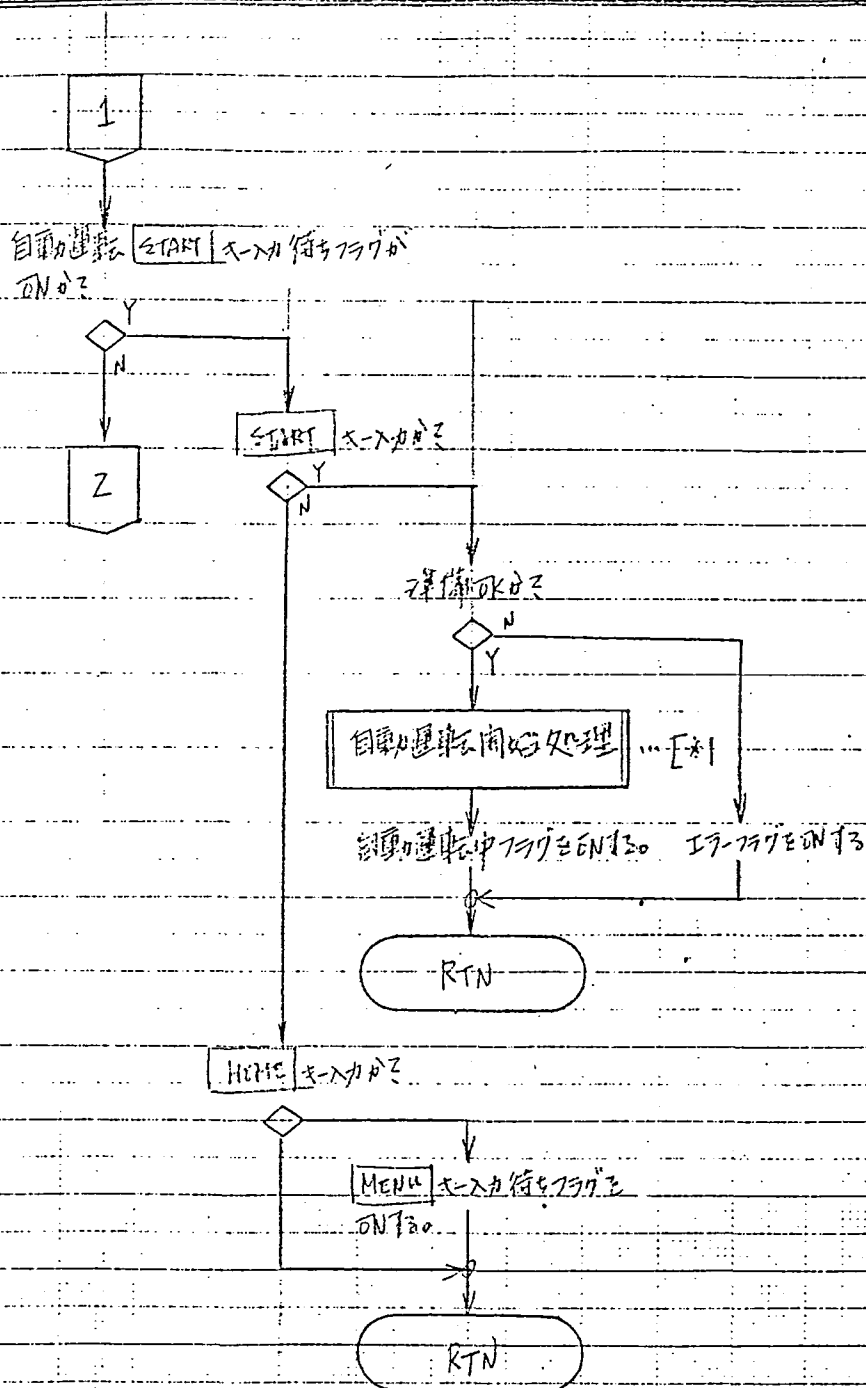 1
自動運転 START キー入力待ちフラグが
ONか?
Y
N
START キー入力か?
2
Y
N
準備OKか?
N
Y
自動運転開始処理 …[※1
自動運転中フラグをONする。 エラーフラグをONする
RTN
HOME キー入力か?
MENU キー入力待ちフラグを
ONする。
RTN